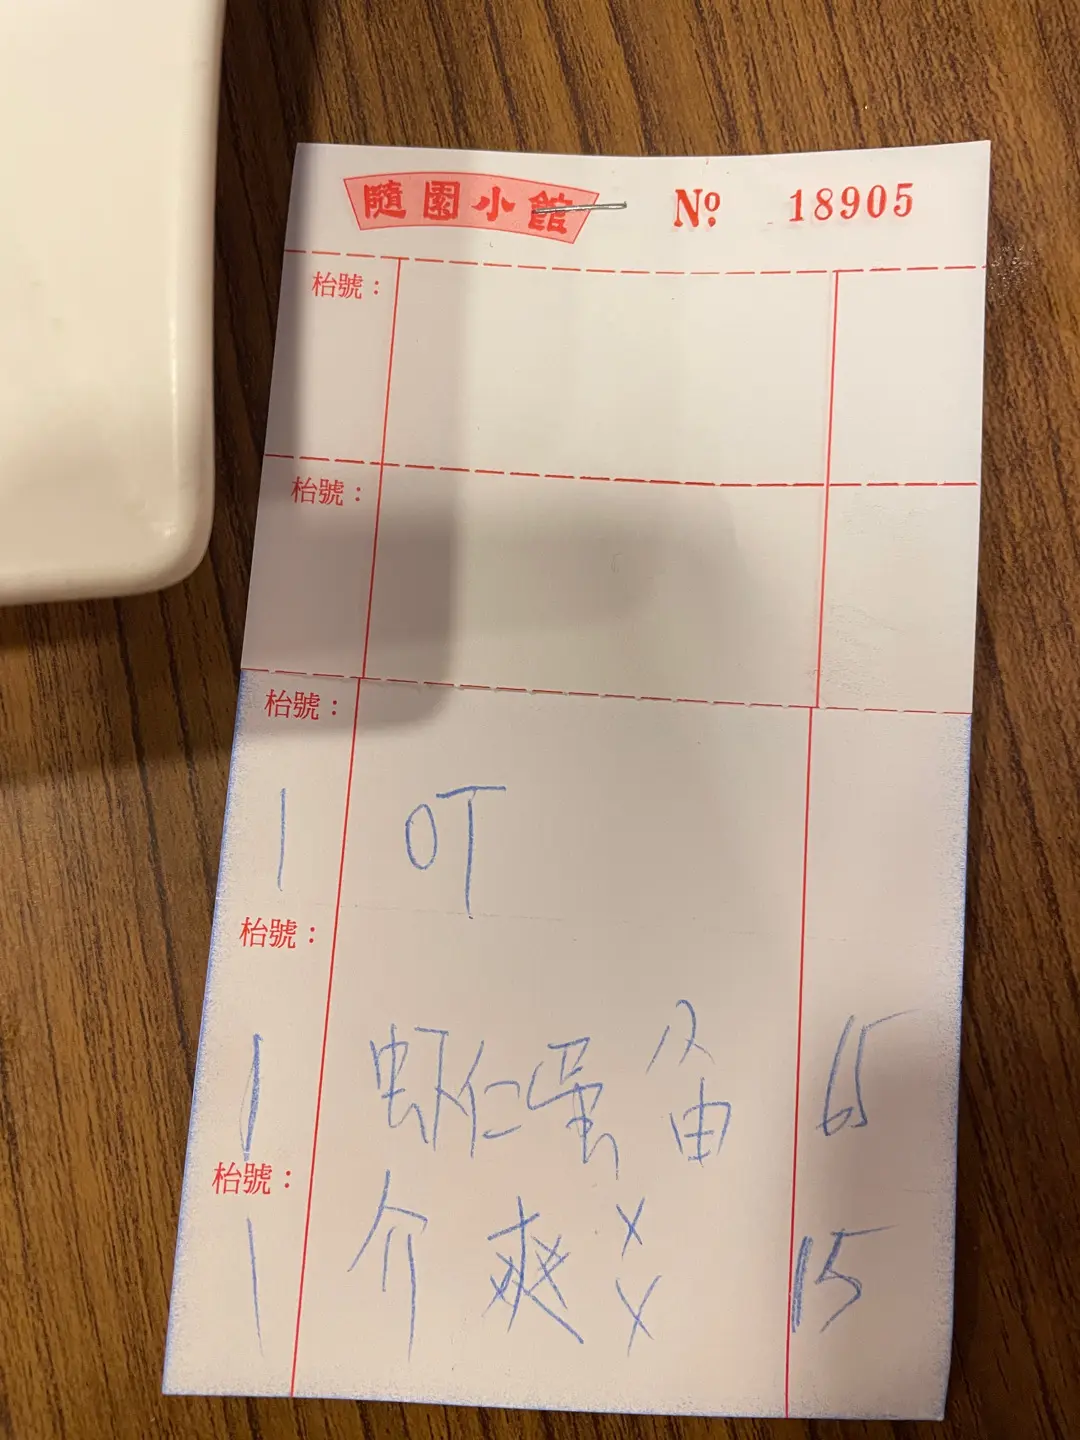 隨園小館 Nº 18905
枱號：
枱號：
枱號：
1 OT
枱號：
1 虾仁蛋 65
枱號：
1 介爽 15